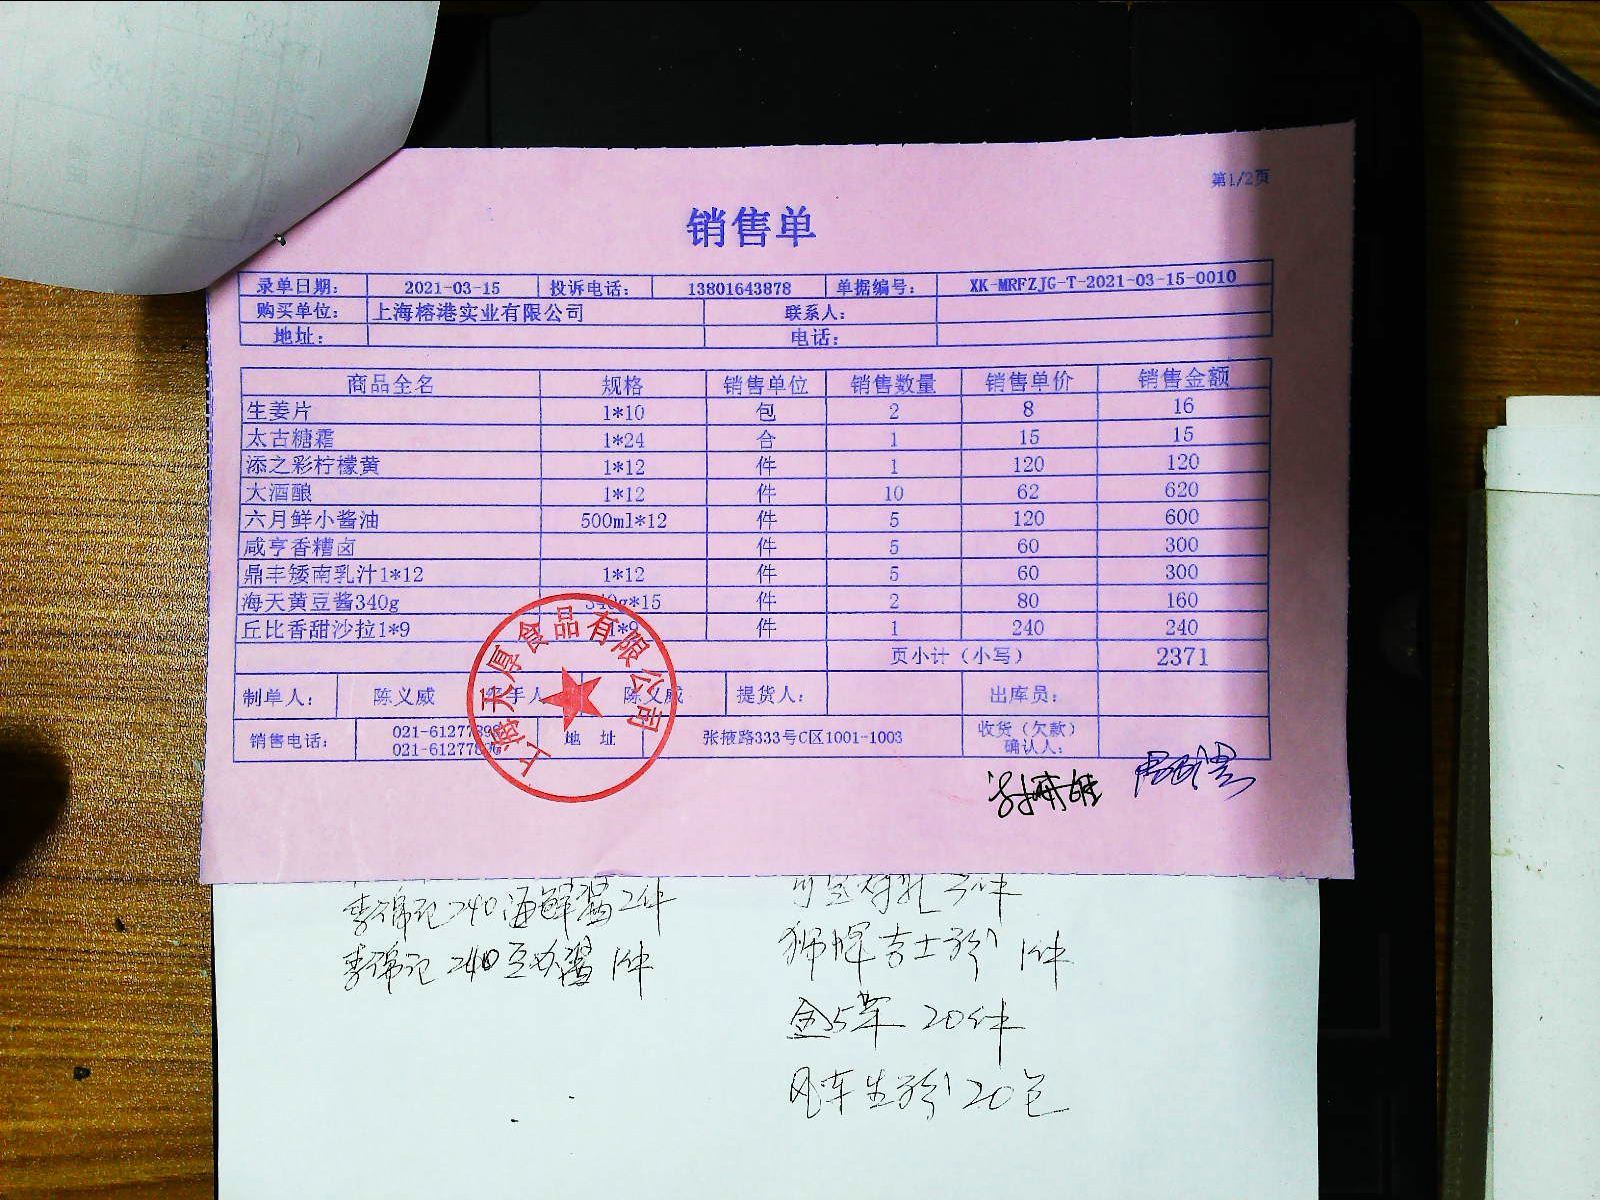 第1/2页
销售单
录单日期: 2021-03-15 投诉电话: 13801643878 单据编号: XK-MRFZJG-T-2021-03-15-0010
购买单位: 上海榕港实业有限公司 联系人:
地址: 电话:
商品全名 规格 销售单位 销售数量 销售单价 销售金额
生姜片 1*10 包 2 8 16
太古糖霜 1*24 合 1 15 15
添之彩柠檬黄 1*12 件 1 120 120
大酒酿 1*12 件 10 62 620
六月鲜小酱油 500ml*12 件 5 120 600
咸亨香糟卤 件 5 60 300
鼎丰矮南乳汁1*12 1*12 件 5 60 300
海天黄豆酱340g 340g*15 件 2 80 160
丘比香甜沙拉1*9 1*9 件 1 240 240
页小计（小写） 2371
制单人: 陈义威 经手人 陈义威 提货人: 出库员:
销售电话: 021-6127789 地 址 张掖路333号C区1001-1003 收货（欠款）
021-612778 确认人:
上海天厚食品有限公司
李锦记240海鲜酱2件
李锦记240豆瓣酱1件
狮牌吉士粉1件
20件
风车生粉20包